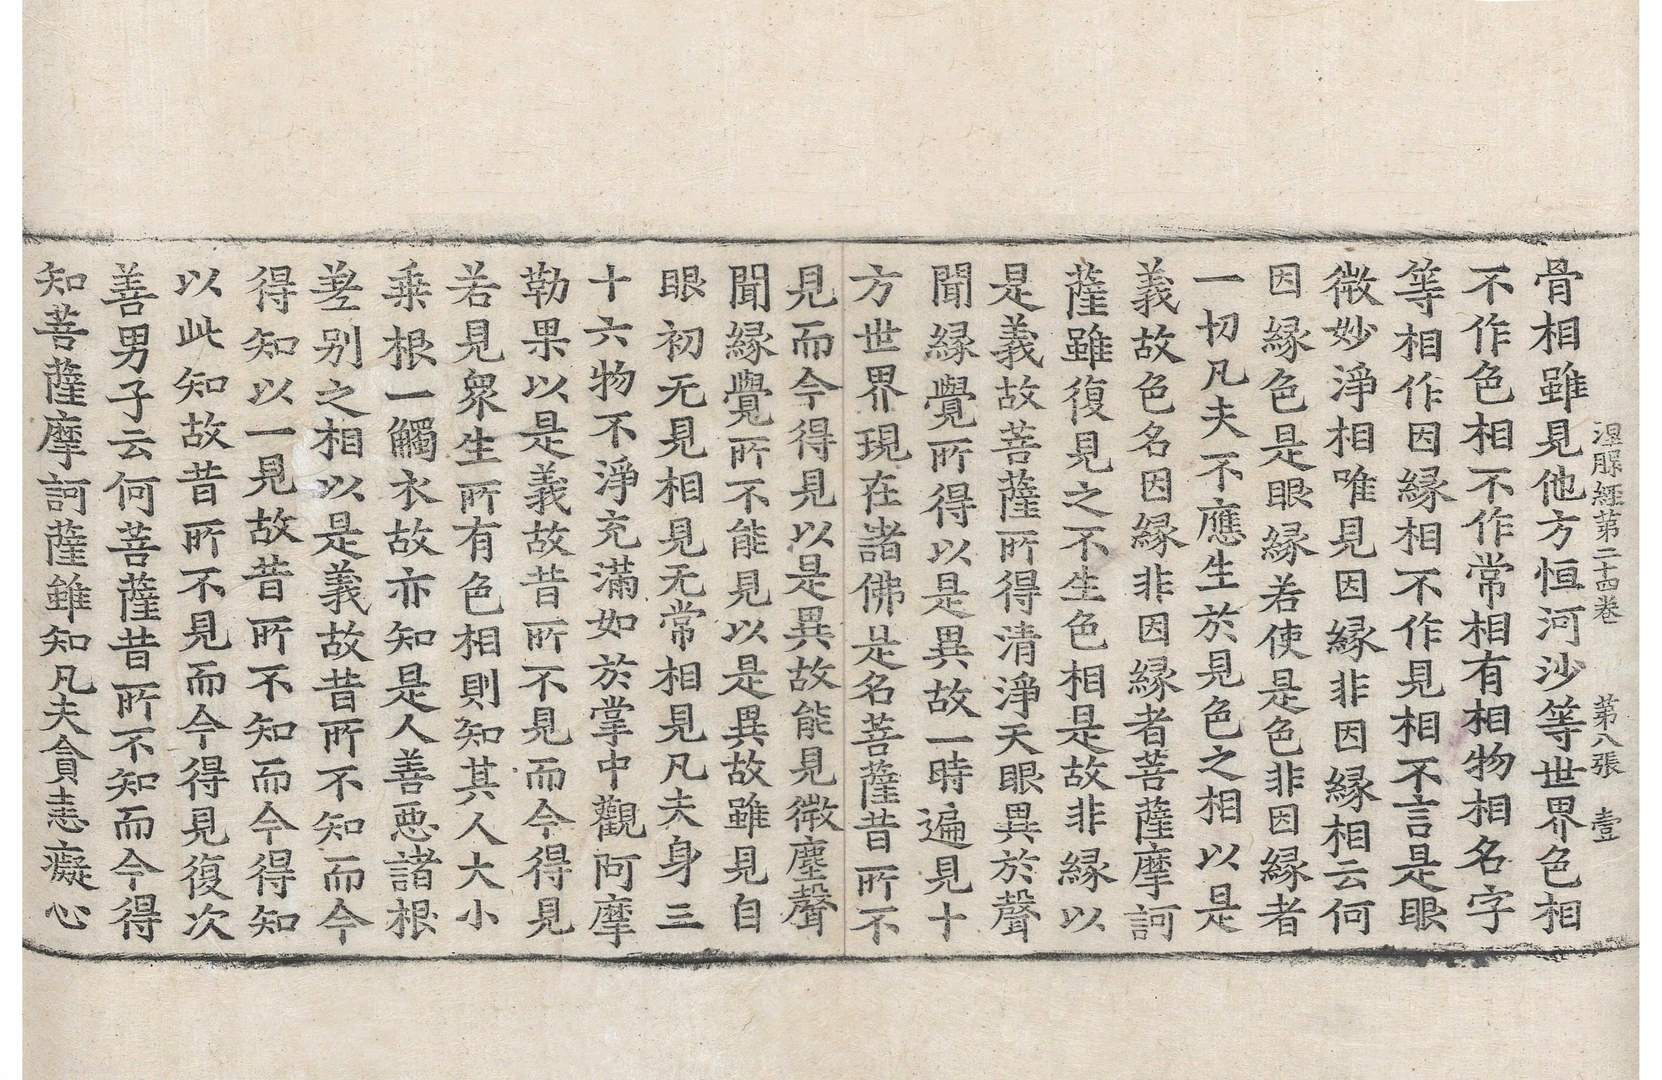 涅槃經第二十四卷　第八張　壹
骨相雖見他方恒河沙等世界色相
不作色相不作常相有相物相名字
等相作因縁相不作見相不言是眼
微妙淨相唯見因縁非因縁相云何
因縁色是眼縁若使是色非因縁者
一切凡夫不應生於見色之相以是
義故色名因縁非因縁者菩薩摩訶
薩雖復見之不生色相是故非縁以
是義故菩薩所得清淨天眼異於聲
聞縁覺所得以是異故一時遍見十
方世界現在諸佛是名菩薩昔所不
見而今得見以是異故能見微塵聲
聞縁覺所不能見以是異故雖見自
眼初无見相見无常相見凡夫身三
十六物不淨充滿如於掌中觀阿摩
勒果以是義故昔所不見而今得見
若見衆生所有色相則知其人大小
乘根一觸衣故亦知是人善惡諸根
差别之相以是義故昔所不知而今
得知以一見故昔所不知而今得知
以此知故昔所不見而今得見復次
善男子云何菩薩昔所不知而今得
知菩薩摩訶薩雖知凡夫貪恚癡心